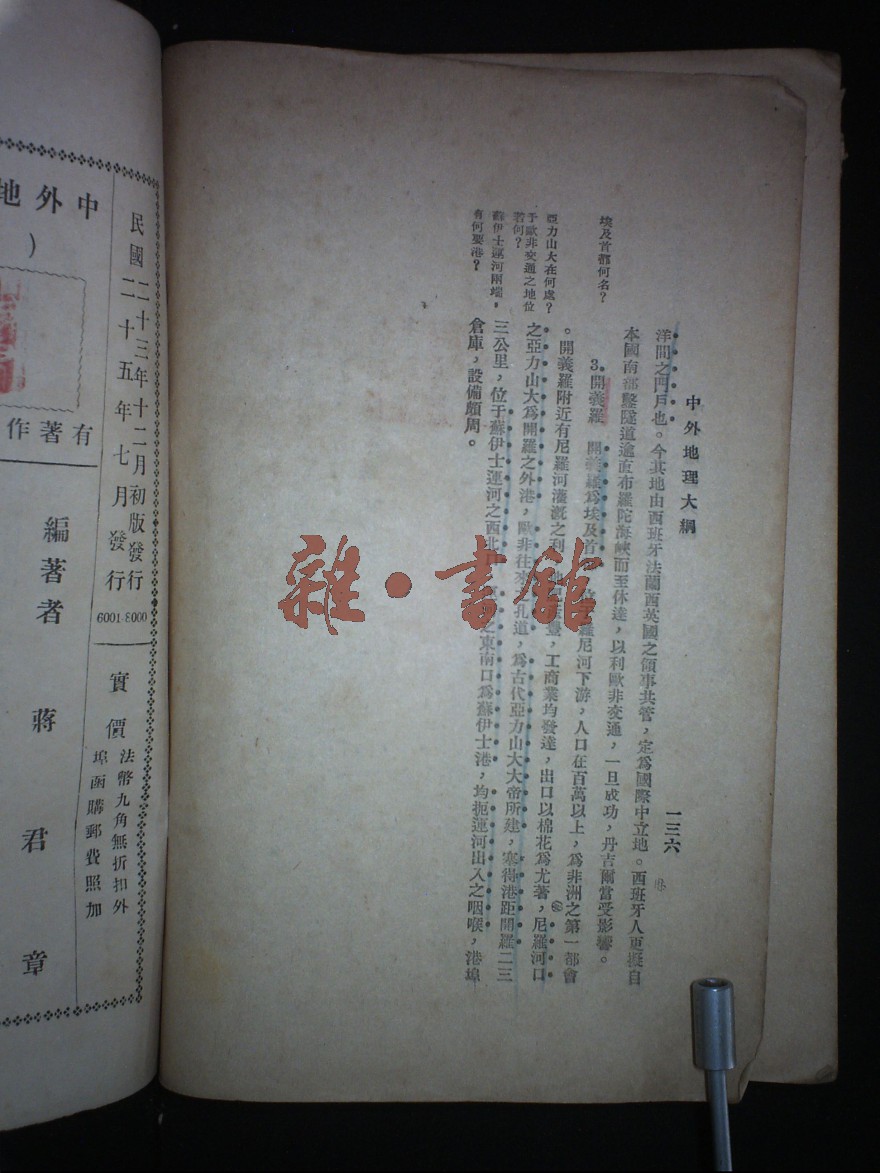 中外地理大綱
一三六
洋間之門戶也。今其地由西班牙法蘭西英國之領事共管，定爲國際中立地。西班牙人更擬自
本國南部鑿隧道逾直布羅陀海峽而至休達，以利歐非交通，一旦成功，丹吉爾當受影響。
埃及首都何名？
3.開義羅 開義羅爲埃及首 羅尼河下游，人口在百萬以上，爲非洲之第一都會
。開義羅附近有尼羅河灌漑之利 ，工商業均發達，出口以棉花爲尤著，尼羅河口
亞力山大在何處？
于歐非交通之地位
若何？
之亞力山大爲開羅之外港，歐非往來之孔道，爲古代亞力山大大帝所建，塞得港距開羅二三
蘇伊士運河兩端，
有何要港？
三公里，位于蘇伊士運河之西北 之東南口爲蘇伊士港，均扼運河出入之咽喉，港埠
倉庫，設備頗周。
雜·書館
民國二十三年十二月初版發行
民國二十五年七月發行
6001-8000
實價
法幣九角無折扣外
埠函購郵費照加
中外地
)
有著作
編著者 蔣君章